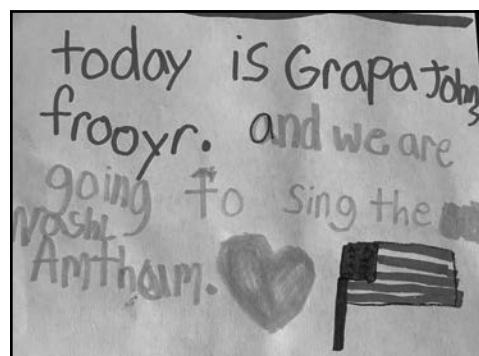 today is Grapa Johns
frooyr. and we are
going to sing the
Nashl
Amtham.